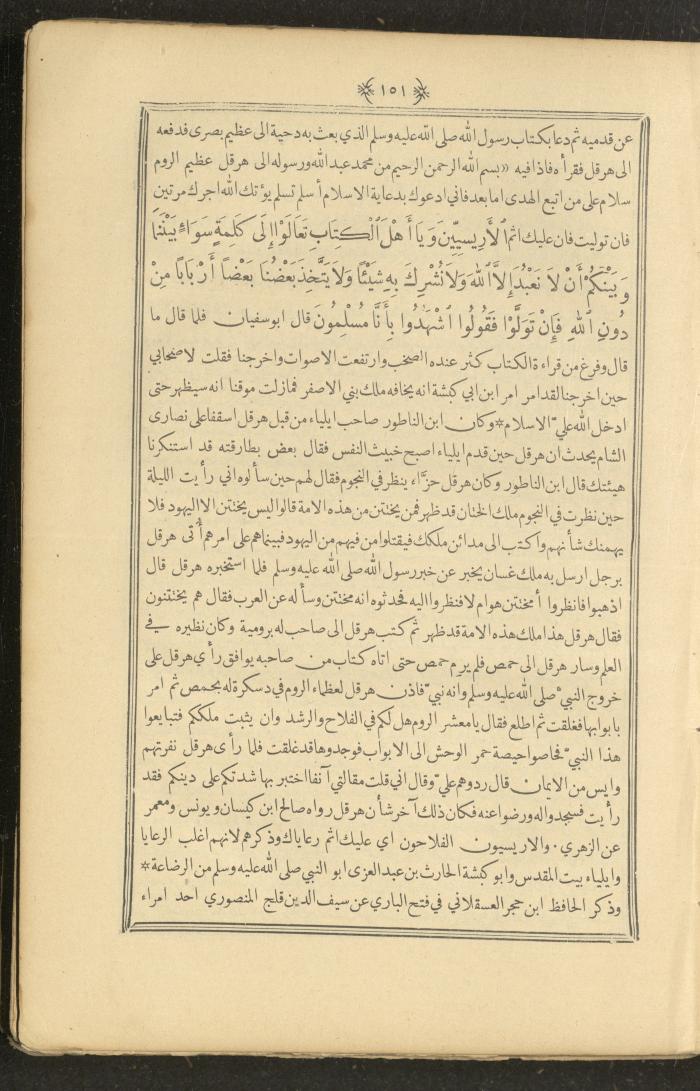 ١٥١
عن قدميه ثم دعا بكتاب رسول الله صلى الله عليه وسلم الذي بعث به دحية الى عظيم بصرى فدفعه
الى هرقل فقرأه فاذا فيه «بسم الله الرحمن الرحيم من محمد عبد الله ورسوله الى هرقل عظيم الروم
سلام على من اتبع الهدى اما بعد فاني ادعوك بدعاية الاسلام أسلم تسلم يؤتك الله اجرك مرتين
فان توليت فان عليك اثم الأريسيين وَيَا أَهْلَ ٱلْكِتَابِ تَعَالَوْا إِلَى كَلِمَةٍ سَوَاءٍ بَيْنَنَا
وَبَيْنَكُمْ أَنْ لاَ نَعْبُدَ إِلاَّ ٱللهَ وَلاَ نُشْرِكَ بِهِ شَيْئًا وَلاَ يَتَّخِذَ بَعْضُنَا بَعْضاً أَرْبَابًا مِنْ
دُونِ ٱللهِ فَإِنْ تَوَلَّوْا فَقُولُوا ٱشْهَدُوا بِأَنَّا مُسْلِمُونَ قال ابو سفيان فلما قال ما
قال وفرغ من قراءة الكتاب كثر عنده الصخب وارتفعت الاصوات واخرجنا فقلت لاصحابي
حين اخرجنا لقد امر امر ابن ابي كبشة انه يخافه ملك بني الاصفر فما زلت موقنا انه سيظهر حتى
ادخل الله عليّ الاسلام * وكان ابن الناطور صاحب ايلياء من قبل هرقل اسقفا على نصارى
الشام يحدث ان هرقل حين قدم ايلياء اصبح خبيث النفس فقال بعض بطارقته قد استنكرنا
هيئتك قال ابن الناطور وكان هرقل حزَّاء ينظر في النجوم فقال لهم حين سألوه اني رأيت الليلة
حين نظرت في النجوم ملك الختان قد ظهر فمن يختتن من هذه الامة قالوا ليس يختتن الا اليهود فلا
يهمنك شأنهم واكتب الى مدائن ملكك فيقتلوا من فيهم من اليهود فبينما هم على امرهم أُتى هرقل
برجل ارسل به ملك غسان يخبر عن خبر رسول الله صلى الله عليه وسلم فلما استخبره هرقل قال
اذهبوا فانظروا أمختتن هو ام لا فنظروا اليه فحدثوه انه مختتن وسأله عن العرب فقال هم يختتنون
فقال هرقل هذا ملك هذه الامة قد ظهر ثم كتب هرقل الى صاحب له برومية وكان نظيره في
العلم وسار هرقل الى حمص فلم يرم حمص حتى اتاه كتاب من صاحبه يوافق رأي هرقل على
خروج النبي صلى الله عليه وسلم وانه نبي فاذن هرقل لعظماء الروم في دسكرة له بحمص ثم امر
بابوابها فغلقت ثم اطلع فقال يا معشر الروم هل لكم في الفلاح والرشد وان يثبت ملككم فتبايعوا
هذا النبي فحاصوا حيصة حمر الوحش الى الابواب فوجدوها قد غلقت فلما رأى هرقل نفرتهم
وايس من الايمان قال ردوهم عليّ وقال اني قلت مقالتي آنفا اختبر بها شدتكم على دينكم فقد
رأيت فسجدوا له ورضوا عنه فكان ذلك آخر شأن هرقل رواه صالح ابن كيسان ويونس ومعمر
عن الزهري. والاريسيون الفلاحون اي عليك اثم رعاياك وذكرهم لانهم اغلب الرعايا
وايلياء بيت المقدس وابو كبشة الحارث بن عبد العزى ابو النبي صلى الله عليه وسلم من الرضاعة *
وذكر الحافظ ابن حجر العسقلاني في فتح الباري عن سيف الدين قلج المنصوري احد امراء